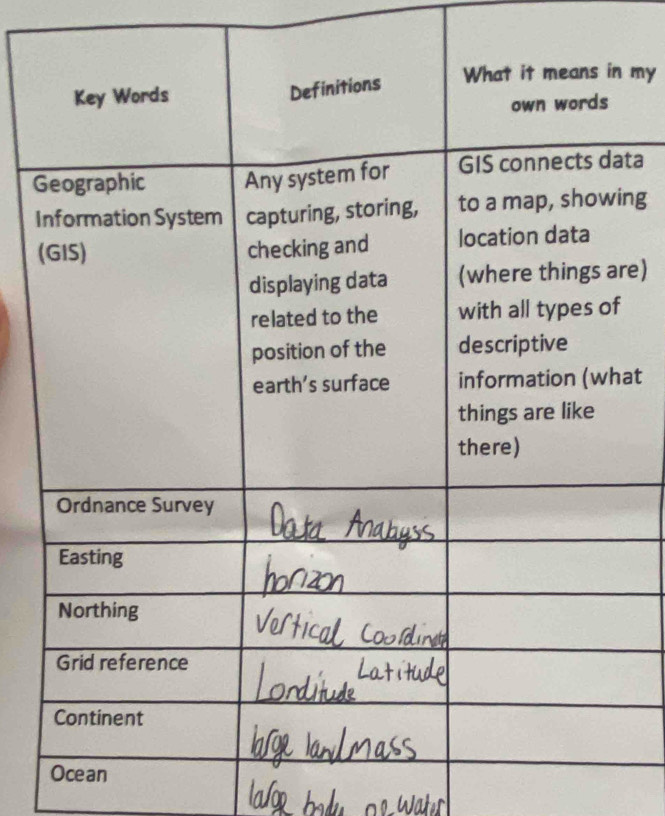 Key Words
Definitions
What it means in my
own words
Geographic
Information System
(GIS)
Any system for
capturing, storing,
checking and
displaying data
related to the
position of the
earth's surface
GIS connects data
to a map, showing
location data
(where things are)
with all types of
descriptive
information (what
things are like
there)
Ordnance Survey
Data Anabyss
Easting
horizon
Northing
Vertical Coordinate
Grid reference
Latitude
Londitude
Continent
large landmass
Ocean
large body oe water